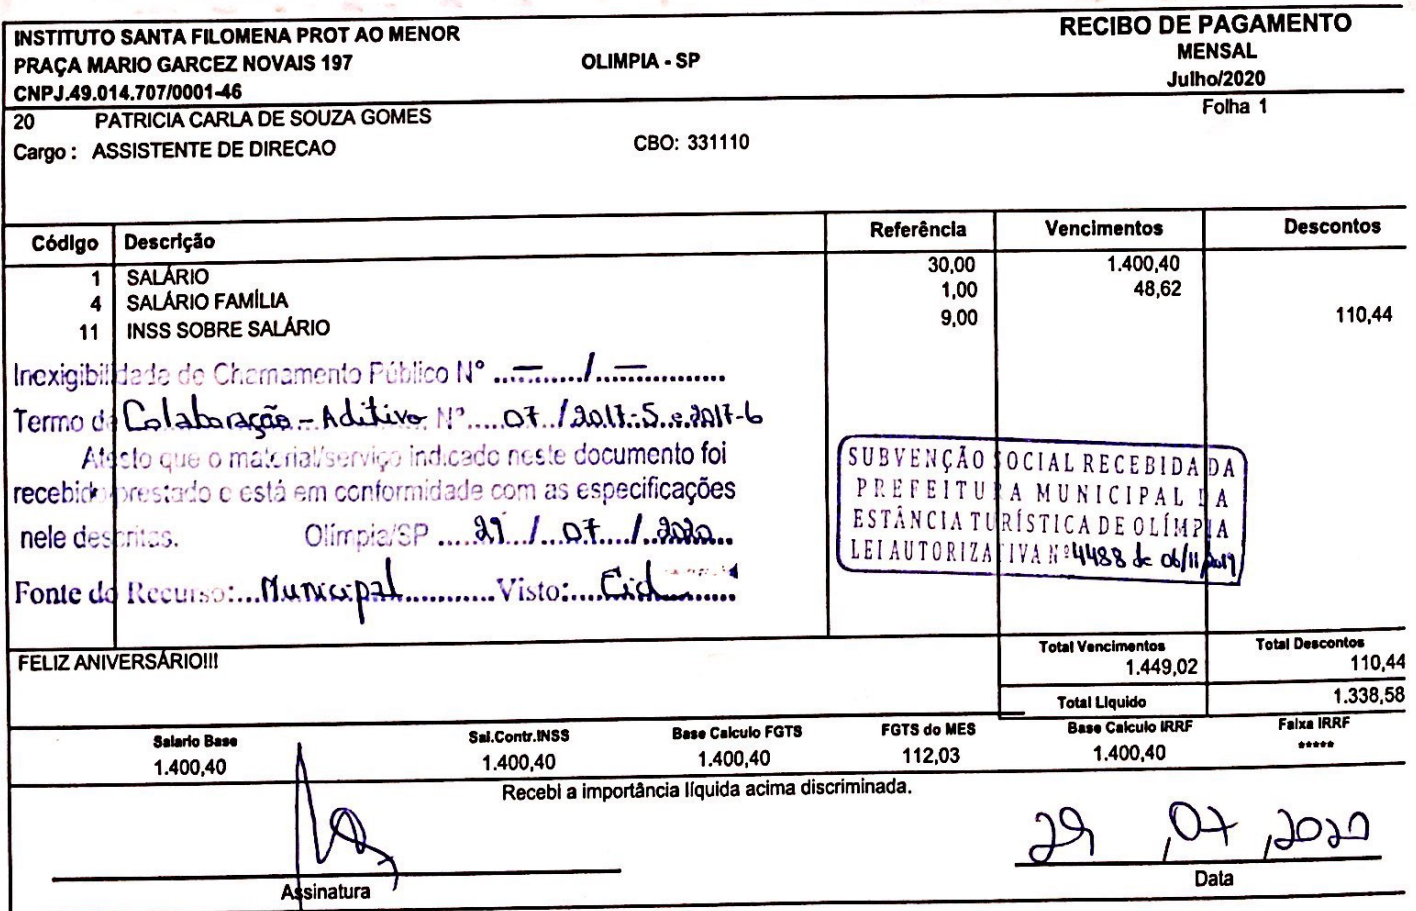 INSTITUTO SANTA FILOMENA PROT AO MENOR
RECIBO DE PAGAMENTO
PRAÇA MARIO GARCEZ NOVAIS 197 OLIMPIA - SP
MENSAL
CNPJ.49.014.707/0001-46
Julho/2020
20 PATRICIA CARLA DE SOUZA GOMES
Folha 1
Cargo : ASSISTENTE DE DIRECAO CBO: 331110
Código Descrição Referência Vencimentos Descontos
1 SALÁRIO 30,00 1.400,40
4 SALÁRIO FAMÍLIA 1,00 48,62
11 INSS SOBRE SALÁRIO 9,00 110,44
Inexigibilidade de Chamamento Público Nº ..—......./..—............
Termo de Colaboração - Aditivo Nº.....07../2017-5 e 2017-6
Atesto que o material/serviço indicado neste documento foi
recebido/prestado e está em conformidade com as especificações
nele descritas. Olímpia/SP .....29../..07..../..2020..
Fonte do Recurso:...Municipal............Visto:....Cid..........
SUBVENÇÃO SOCIAL RECEBIDA DA
PREFEITURA MUNICIPAL DA
ESTÂNCIA TURÍSTICA DE OLÍMPIA
LEI AUTORIZATIVA Nº 4488 de 06/11/2019
FELIZ ANIVERSÁRIO!!!
Total Vencimentos Total Descontos
1.449,02 110,44
Total Liquido 1.338,58
Salario Base Sal.Contr.INSS Base Calculo FGTS FGTS do MES Base Calculo IRRF Faixa IRRF
1.400,40 1.400,40 1.400,40 112,03 1.400,40 *****
Recebi a importância líquida acima discriminada.
29 , 07 , 2020
Assinatura Data